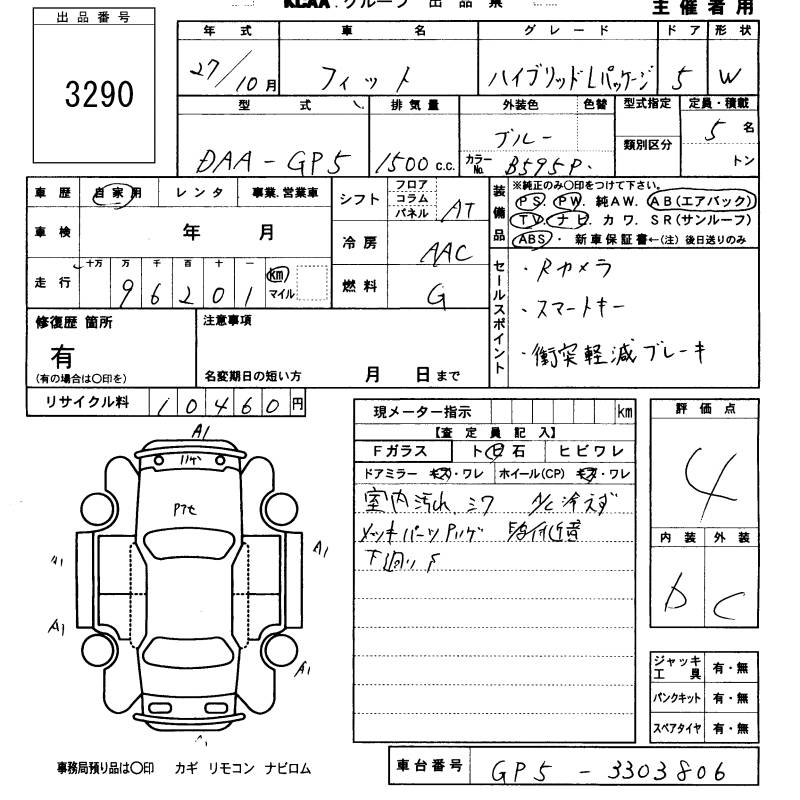 KCAA グループ 出品票
主催者用
出品番号
3290
年式 車名 グレード ドア 形状
27/10月 フィット ハイブリッドLパッケージ 5 W
型式 排気量 外装色 色替 型式指定 定員・積載
類別区分
DAA-GP5 1500 c.c. ブルー カラーNo. B595P. 5名
トン
車歴 自家用 レンタ 事業.営業車
車検 年 月
走行 十万 万 千 百 十 一
96201 km マイル
シフト フロア コラム パネル AT
冷房 AAC
燃料 G
装備品 ※純正のみ〇印をつけて下さい。
PS PW. 純AW. AB(エアバック)
TV.ナビ.カワ.SR(サンルーフ)
ABS・新車保証書←(注)後日送りのみ
セールスポイント
・Rカメラ
・スマートキー
・衝突軽減ブレーキ
修復歴 箇所
有
(有の場合は〇印を)
注意事項
名変期日の短い方 月 日まで
リサイクル料 10460円
現メーター指示 km
【査定員記入】
Fガラス ト 石 ヒビワレ
ドアミラー キズ・ワレ ホイール(CP) キズ・ワレ
室内汚れ シワ A/C冷えず
メッキパーツ
下廻り
評価点
4
内装 外装
D C
A1
A1
A1
A1
ジャッキ工具 有・無
パンクキット 有・無
スペアタイヤ 有・無
事務局預り品は〇印 カギ リモコン ナビロム
車台番号 GP5-3303806